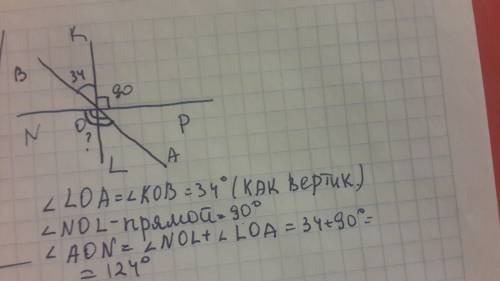 K
B
34
90
N
O
P
?
L
A
∠LOA=∠KOB=34° (КАК вертик.)
∠NOL-прямой=90°
∠AON=∠NOL+∠LOA=34+90°=
=124°